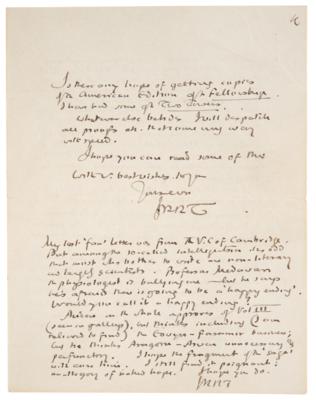 Is there any hope of getting copies
of the American Edition of the Fellowship.
I have had none of the Two Towers.
Whatever else betides I will despatch
all proofs etc. that come my way
with speed.
I hope you can read some of this
With v. best wishes to you
Yours ever
JRRT
My last 'fan' letter was from the V.C. of Cambridge.
But amongst the so-called intelligentsia it is odd
that most who bother to write are non-literary
as largely scientists. Professor Medawar
the physiologist is bullying me — but he says
he's afraid there is going to be a 'happy ending'.
Would you call it a happy ending?
Auden on the whole approves of Vol III
(seen in galleys), but thinks including (I am
relieved to find) the Eowyn-Faramir business;
but he thinks Aragorn-Arwen unnecessary &
perfunctory. I hope the fragment of the 'saga'
will cure him. I still find it poignant:
an allegory of naked hope. I hope you do.
JRRT